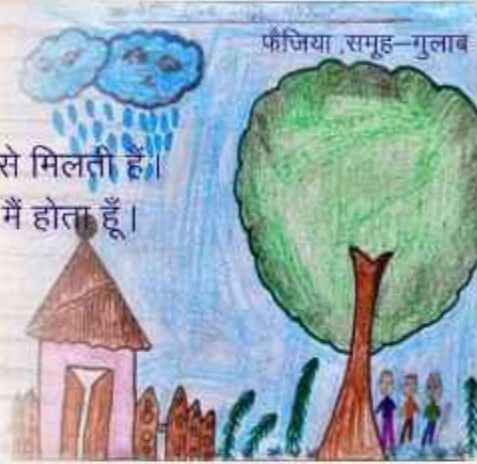 फैजिया ,समूह–गुलाब
से मिलती हैं।
मैं होता हूँ।